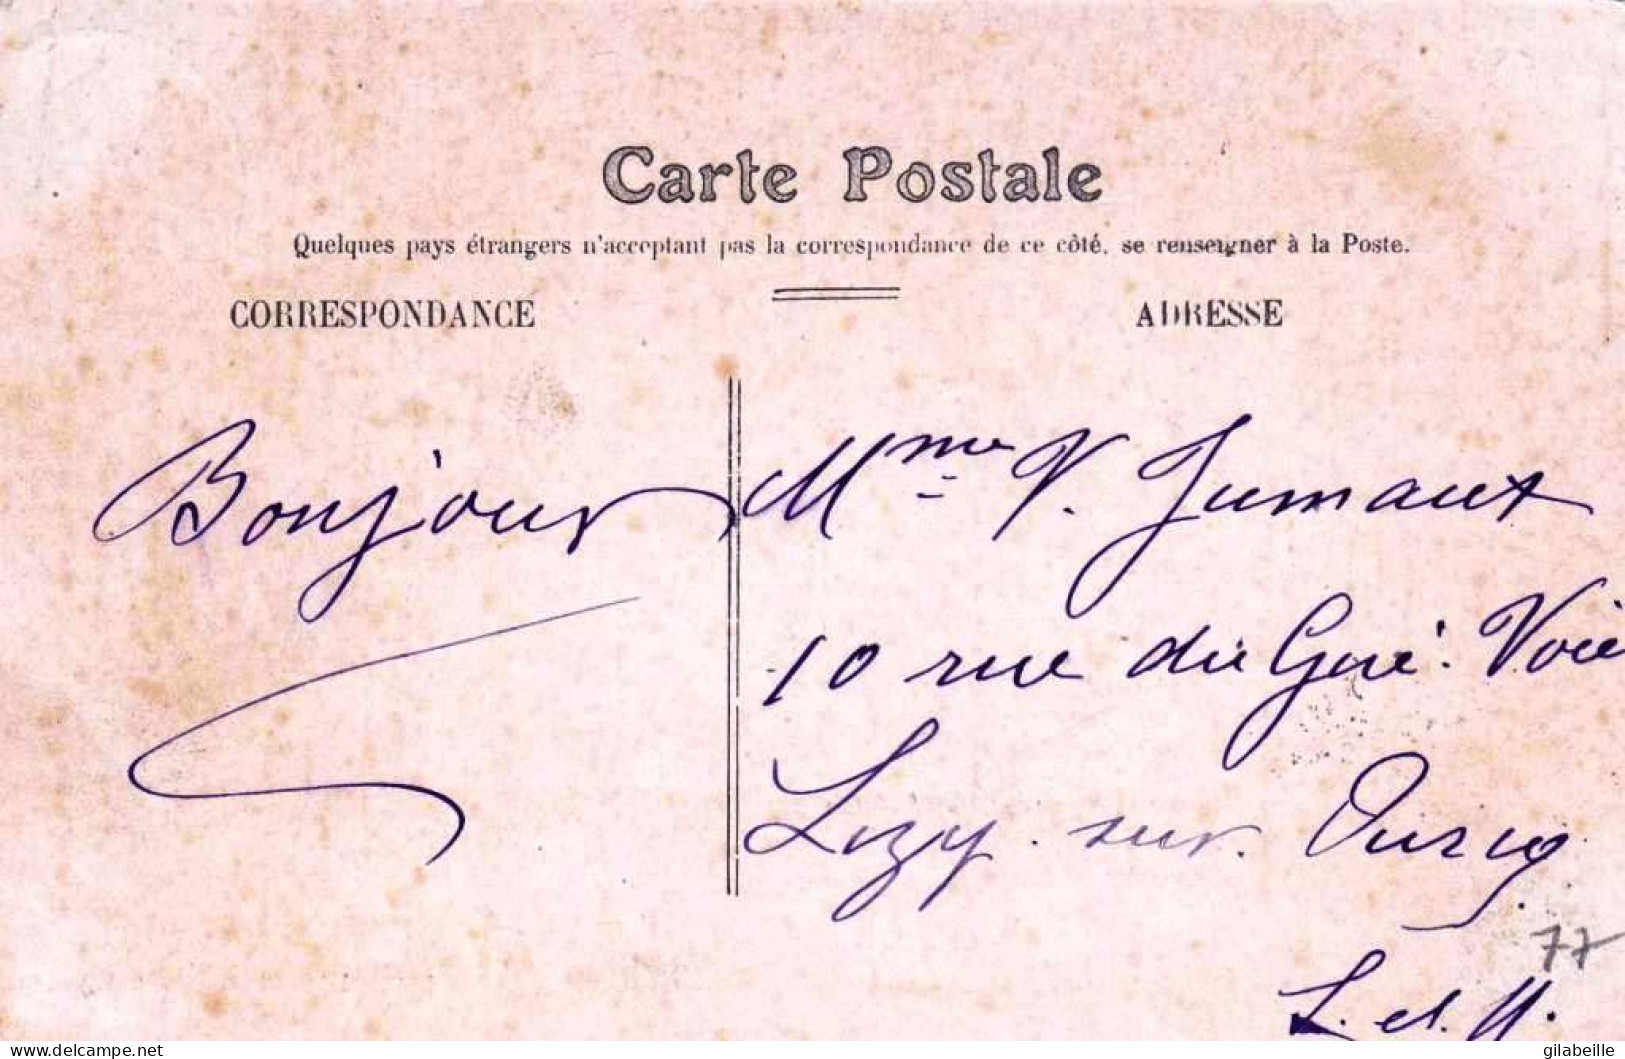 Carte Postale
Quelques pays étrangers n'acceptant pas la correspondance de ce côté, se renseigner à la Poste.
CORRESPONDANCE
ADRESSE
Bonjour
Mme V. Jumaux
10 rue du Gué. Voie
Lizy. sur. Ourcq.
77
S. et. M.
www.delcampe.net
gilabeille